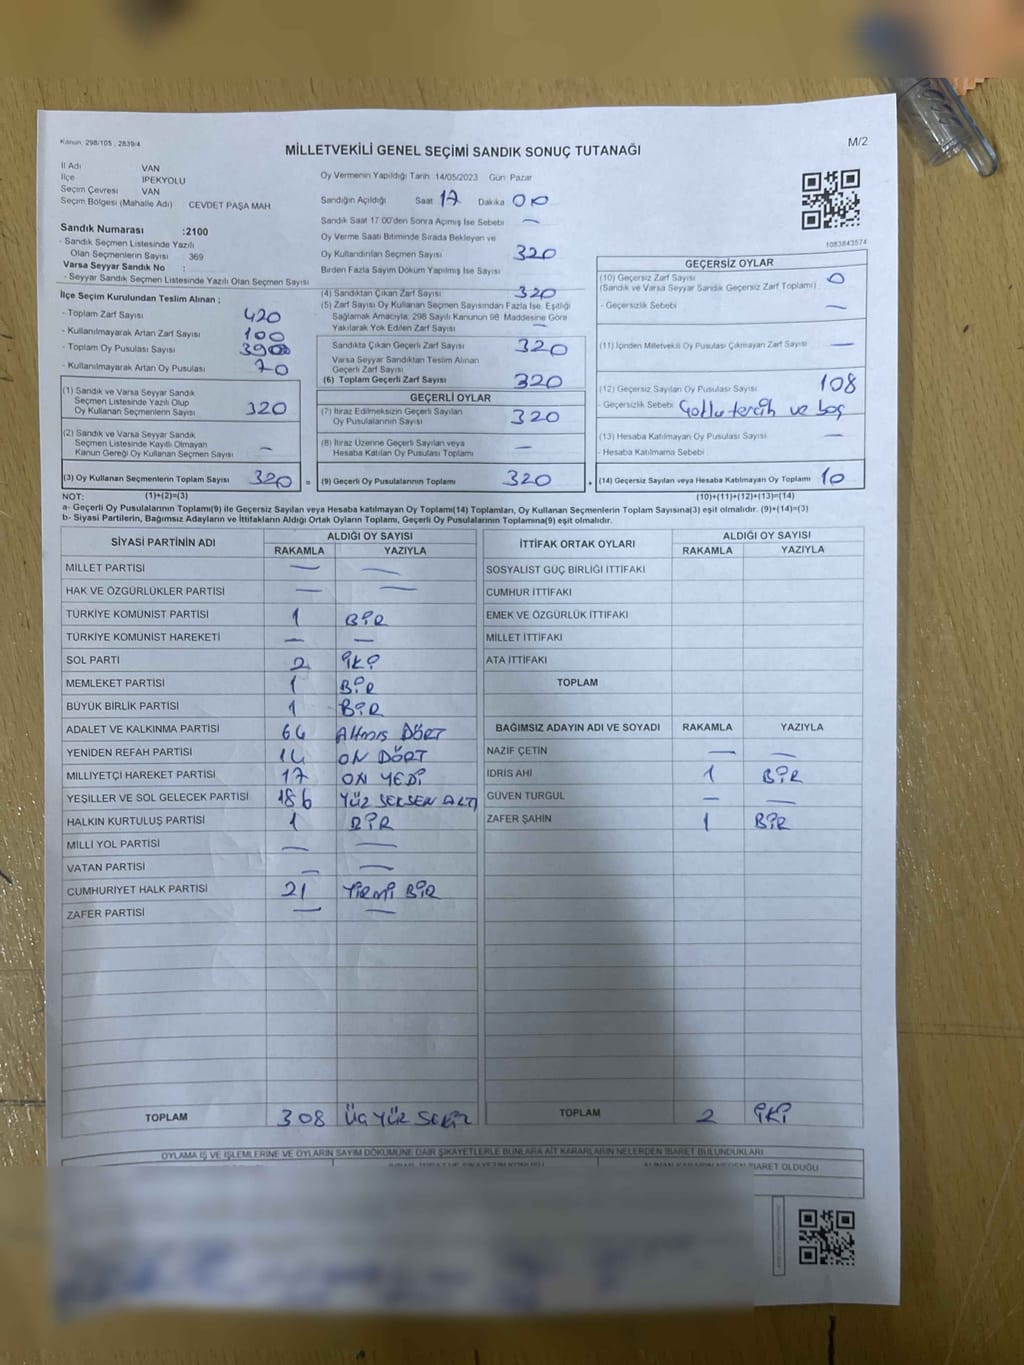 Kanun: 298/105, 2839/4
M/2
MİLLETVEKİLİ GENEL SEÇİMİ SANDIK SONUÇ TUTANAĞI
İl Adı VAN
İlçe İPEKYOLU
Seçim Çevresi VAN
Seçim Bölgesi (Mahalle Adı) CEVDET PAŞA MAH.
Sandık Numarası :2100
- Sandık Seçmen Listesinde Yazılı
Olan Seçmenlerin Sayısı : 369
Varsa Seyyar Sandık No :
- Seyyar Sandık Seçmen Listesinde Yazılı Olan Seçmen Sayısı
İlçe Seçim Kurulundan Teslim Alınan ;
- Toplam Zarf Sayısı 420
- Kullanılmayarak Artan Zarf Sayısı 100
- Toplam Oy Pusulası Sayısı
- Kullanılmayarak Artan Oy Pusulası 70
(1) Sandık ve Varsa Seyyar Sandık
Seçmen Listesinde Yazılı Olup
Oy Kullanan Seçmenlerin Sayısı 320
(2) Sandık ve Varsa Seyyar Sandık
Seçmen Listesinde Kayıtlı Olmayan
Kanun Gereği Oy Kullanan Seçmen Sayısı —
(3) Oy Kullanan Seçmenlerin Toplam Sayısı 320 =
Oy Vermenin Yapıldığı Tarih 14/05/2023 Gün Pazar
Sandığın Açıldığı Saat 17 Dakika 00
Sandık Saat 17.00'den Sonra Açımış İse Sebebi —
Oy Verme Saati Bitiminde Sırada Bekleyen ve
Oy Kullandırılan Seçmen Sayısı 320
Birden Fazla Sayım Döküm Yapılmış İse Sayısı
(4) Sandıktan Çıkan Zarf Sayısı 320
(5) Zarf Sayısı Oy Kullanan Seçmen Sayısından Fazla İse, Eşitliği
Sağlamak Amacıyla, 298 Sayılı Kanunun 98. Maddesine Göre
Yakılarak Yok Edilen Zarf Sayısı —
Sandıkta Çıkan Geçerli Zarf Sayısı 320
Varsa Seyyar Sandıktan Teslim Alınan
Geçerli Zarf Sayısı
(6) Toplam Geçerli Zarf Sayısı 320
GEÇERLİ OYLAR
(7) İtiraz Edilmeksizin Geçerli Sayılan
Oy Pusulalarının Sayısı 320
(8) İtiraz Üzerine Geçerli Sayılan veya
Hesaba Katılan Oy Pusulası Toplamı —
(9) Geçerli Oy Pusulalarının Toplamı 320 +
1083843574
GEÇERSİZ OYLAR
(10) Geçersiz Zarf Sayısı 0
(Sandık ve Varsa Seyyar Sandık Geçersiz Zarf Toplamı)
- Geçersizlik Sebebi —
(11) İçinden Milletvekili Oy Pusulası Çıkmayan Zarf Sayısı —
(12) Geçersiz Sayılan Oy Pusulası Sayısı 108
- Geçersizlik Sebebi tercih ve boş
(13) Hesaba Katılmayan Oy Pusulası Sayısı —
- Hesaba Katılmama Sebebi
(14) Geçersiz Sayılan veya Hesaba Katılmayan Oy Toplamı 10
NOT: (1)+(2)=(3) (10)+(11)+(12)+(13)=(14)
a- Geçerli Oy Pusulalarının Toplamı(9) ile Geçersiz Sayılan veya Hesaba katılmayan Oy Toplamı(14) Toplamları, Oy Kullanan Seçmenlerin Toplam Sayısına(3) eşit olmalıdır. (9)+(14)=(3)
b- Siyasi Partilerin, Bağımsız Adayların ve İttifakların Aldığı Ortak Oyların Toplamı, Geçerli Oy Pusulalarının Toplamına(9) eşit olmalıdır.
SİYASİ PARTİNİN ADI ALDIĞI OY SAYISI
RAKAMLA YAZIYLA
MİLLET PARTİSİ — —
HAK VE ÖZGÜRLÜKLER PARTİSİ — —
TÜRKİYE KOMÜNİST PARTİSİ 1 BİR
TÜRKİYE KOMÜNİST HAREKETİ — —
SOL PARTİ 2 İKİ
MEMLEKET PARTİSİ 1 BİR
BÜYÜK BİRLİK PARTİSİ 1 BİR
ADALET VE KALKINMA PARTİSİ 64 Altmış DÖRT
YENİDEN REFAH PARTİSİ 14 ON DÖRT
MİLLİYETÇİ HAREKET PARTİSİ 17 ON YEDİ
YEŞİLLER VE SOL GELECEK PARTİSİ 186 YÜZ SEKSEN ALTI
HALKIN KURTULUŞ PARTİSİ 1 BİR
MİLLİ YOL PARTİSİ — —
VATAN PARTİSİ — —
CUMHURİYET HALK PARTİSİ 21 YİRMİ BİR
ZAFER PARTİSİ — —
TOPLAM 308 ÜÇ YÜZ SEKİZ
İTTİFAK ORTAK OYLARI ALDIĞI OY SAYISI
RAKAMLA YAZIYLA
SOSYALİST GÜÇ BİRLİĞİ İTTİFAKI
CUMHUR İTTİFAKI
EMEK VE ÖZGÜRLÜK İTTİFAKI
MİLLET İTTİFAKI
ATA İTTİFAKI
TOPLAM
BAĞIMSIZ ADAYIN ADI VE SOYADI RAKAMLA YAZIYLA
NAZİF ÇETİN — —
İDRİS AHİ 1 BİR
GÜVEN TURGUL — —
ZAFER ŞAHİN 1 BİR
TOPLAM 2 İKİ
OYLAMA İŞ VE İŞLEMLERİNE VE OYLARIN SAYIM DÖKÜMÜNE DAİR ŞİKAYETLERLE BUNLARA AİT KARARLARIN NELERDEN İBARET BULUNDUKLARI